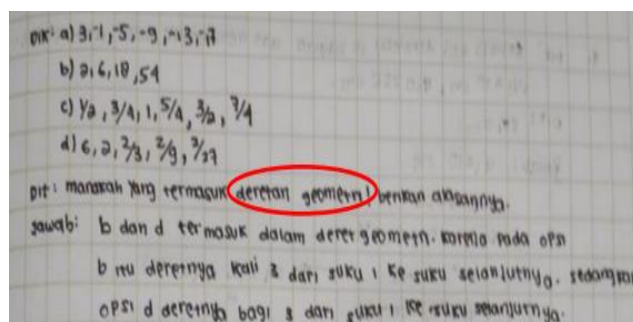 Dik: a) 3,-1,-5,-9,-13,-17
b) 2,6,18,54
c) 1/2, 3/4, 1, 5/4, 3/2, 7/4
d) 6, 2, 2/3, 2/9, 2/27
Dit: manakah yang termasuk deretan geometri berikan alasannya.
Jawab: b dan d termasuk dalam deret geometri. karena pada opsi
b itu deretnya kali 3 dari suku 1 ke suku selanjutnya. sedangkan
opsi d deretnya bagi 3 dari suku 1 ke suku selanjutnya.